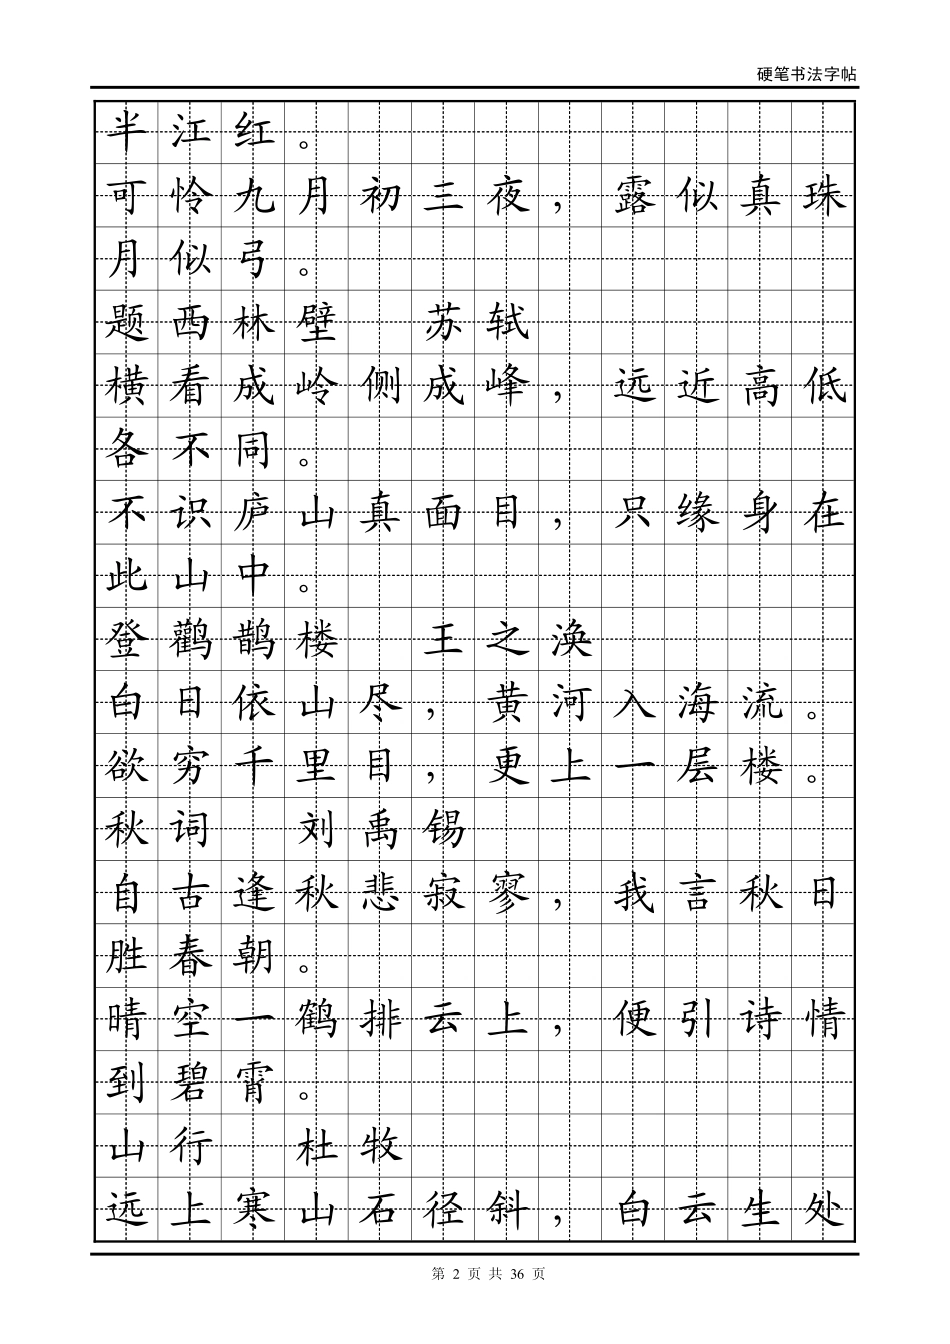 硬笔书法字帖
半江红。
可怜九月初三夜，露似真珠
月似弓。
题西林壁　苏轼
横看成岭侧成峰，远近高低
各不同。
不识庐山真面目，只缘身在
此山中。
登鹳鹊楼　王之涣
白日依山尽，黄河入海流。
欲穷千里目，更上一层楼。
秋词　刘禹锡
自古逢秋悲寂寥，我言秋日
胜春朝。
晴空一鹤排云上，便引诗情
到碧霄。
山行　杜牧
远上寒山石径斜，白云生处
第 2 页 共 36 页